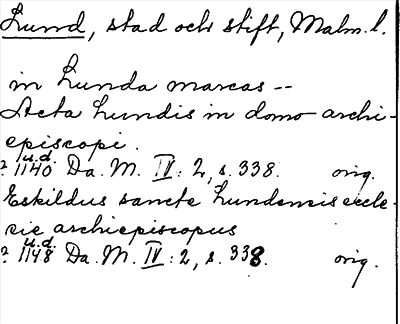 Lund, stad och stift, Malm. l.
in Lunda marcas --
Acta Lundis in domo archi-
episcopi.
u.d.
? 1140 Da. M. IV: 2, s. 338. orig.
Eskildus sancte Lundensis eccle-
sie archiepiscopus
u.d.
? 1148 Da. M. IV: 2, s. 338. orig.